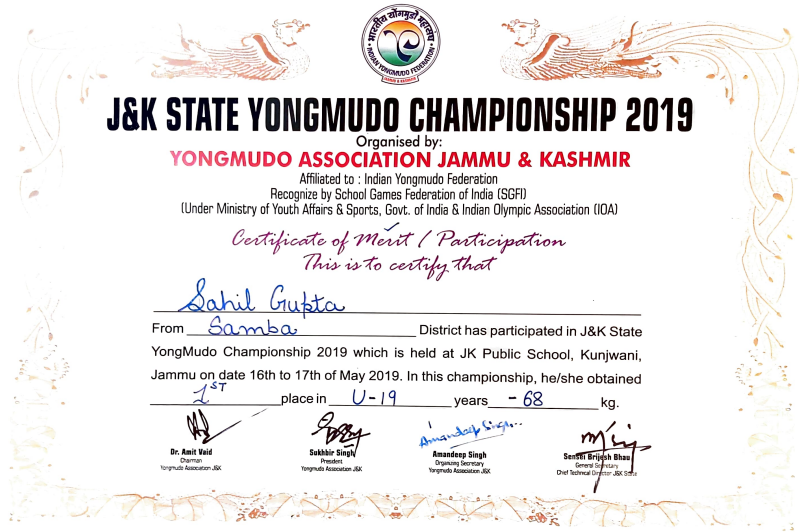 भारतीय योंगमुडो महासंघ
INDIAN YONGMUDO FEDERATION
JAMMU & KASHMIR
J&K STATE YONGMUDO CHAMPIONSHIP 2019
Organised by:
YONGMUDO ASSOCIATION JAMMU & KASHMIR
Affiliated to : Indian Yongmudo Federation
Recognize by School Games Federation of India (SGFI)
(Under Ministry of Youth Affairs & Sports, Govt. of India & Indian Olympic Association (IOA)
Certificate of Merit / Participation
This is to certify that
Sahil Gupta
From Samba District has participated in J&K State
YongMudo Championship 2019 which is held at JK Public School, Kunjwani,
Jammu on date 16th to 17th of May 2019. In this championship, he/she obtained
1ST place in U-19 years -68 kg.
Amandeep Singh
Dr. Amit Vaid
Chairman
Yongmudo Association J&K
Sukhbir Singh
President
Yongmudo Association J&K
Amandeep Singh
Organizing Secretary
Yongmudo Association J&K
Sensei Brijesh Bhau
General Secretary
Chief Technical Director J&K State